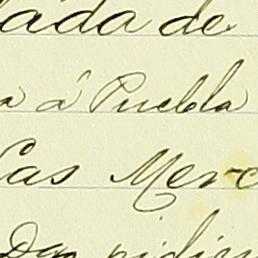 lada de
a á Puebla
Las Merc
Dⁿ pidien